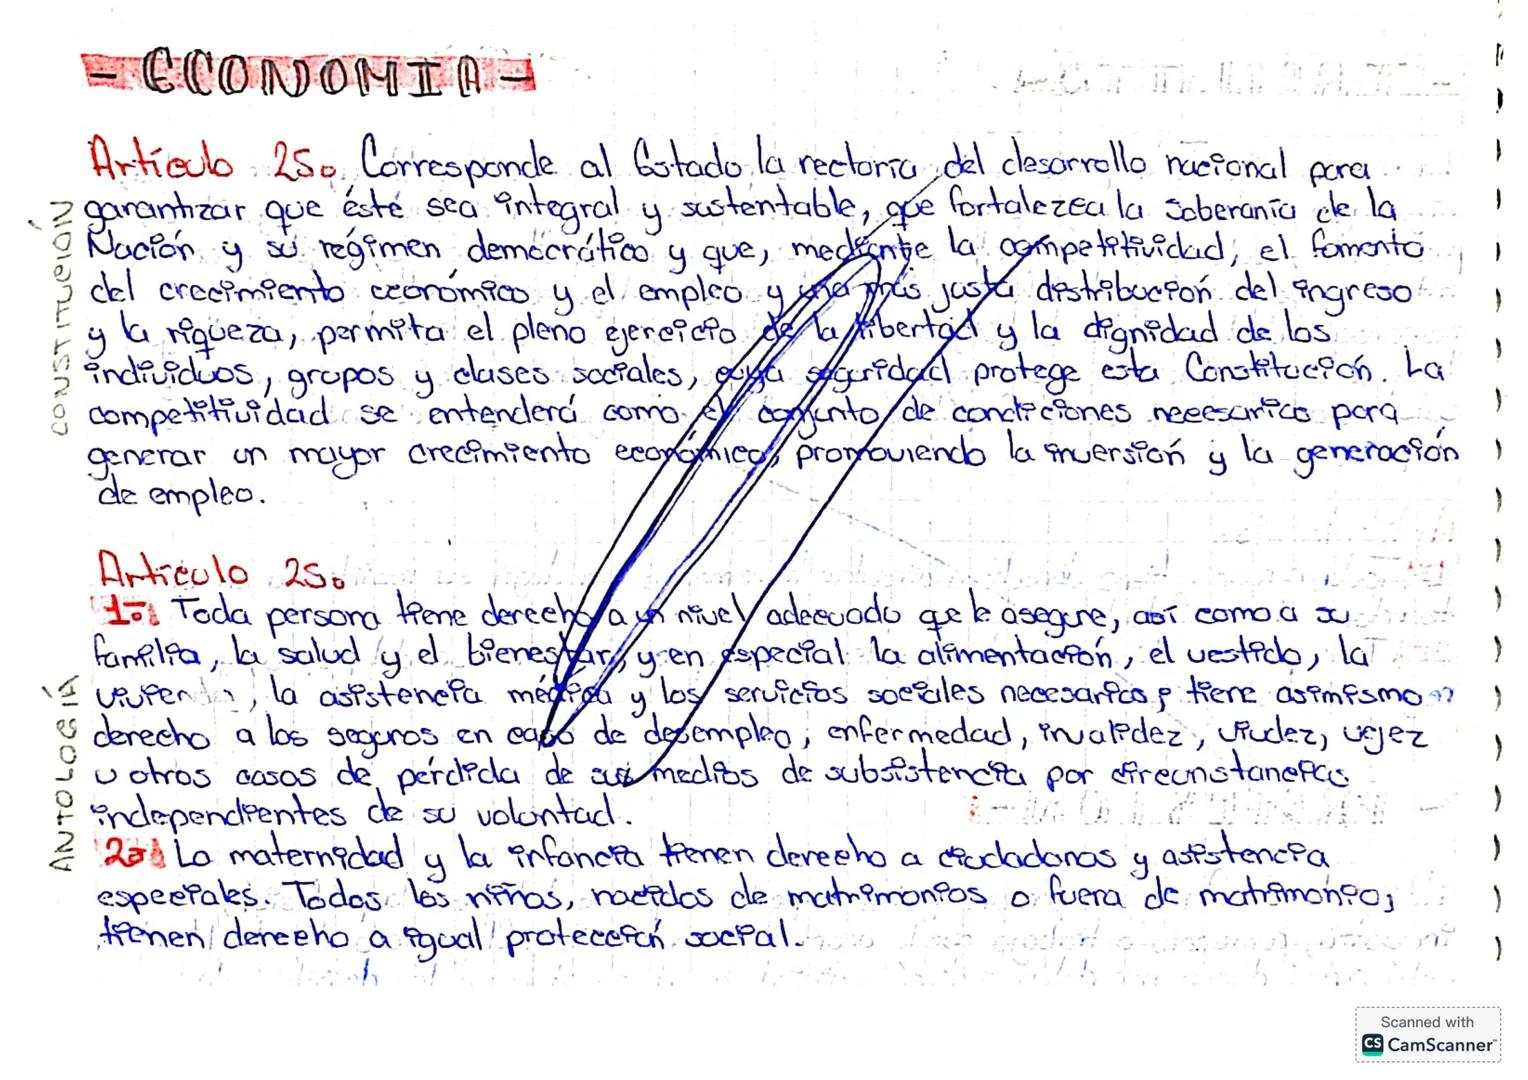 - ECONOMIA -
CONSTITUCIÓN
Artículo 25. Corresponde al Estado la rectoría del desarrollo nacional para
garantizar que éste sea integral y sustentable, que fortalezca la Soberanía de la
Nación y su régimen democrático y que, mediante la competitividad, el fomento
del crecimiento económico y el empleo y una más justa distribución del ingreso
y la riqueza, permita el pleno ejercicio de la libertad y la dignidad de los
individuos, grupos y clases sociales, cuya seguridad protege esta Constitución. La
competitividad se entenderá como el conjunto de condiciones necesarias para
generar un mayor crecimiento económico, promoviendo la inversión y la generación
de empleo.
ANTOLOGÍA
Artículo 25.
1. Toda persona tiene derecho a un nivel adecuado que le asegure, así como a su
familia, la salud y el bienestar, y en especial la alimentación, el vestido, la
la asistencia médica y los servicios sociales necesarios; tiene asimismo
derecho a los seguros en caso de desempleo, enfermedad, invalidez, viudez, vejez
u otros casos de pérdida de sus medios de subsistencia por circunstancias
independientes de su voluntad.
2. La maternidad y la infancia tienen derecho a ciudadanos y asistencia
especiales. Todos los niños, nacidos de matrimonios o fuera de matrimonio,
tienen derecho a igual protección social.
Scanned with
CS CamScanner